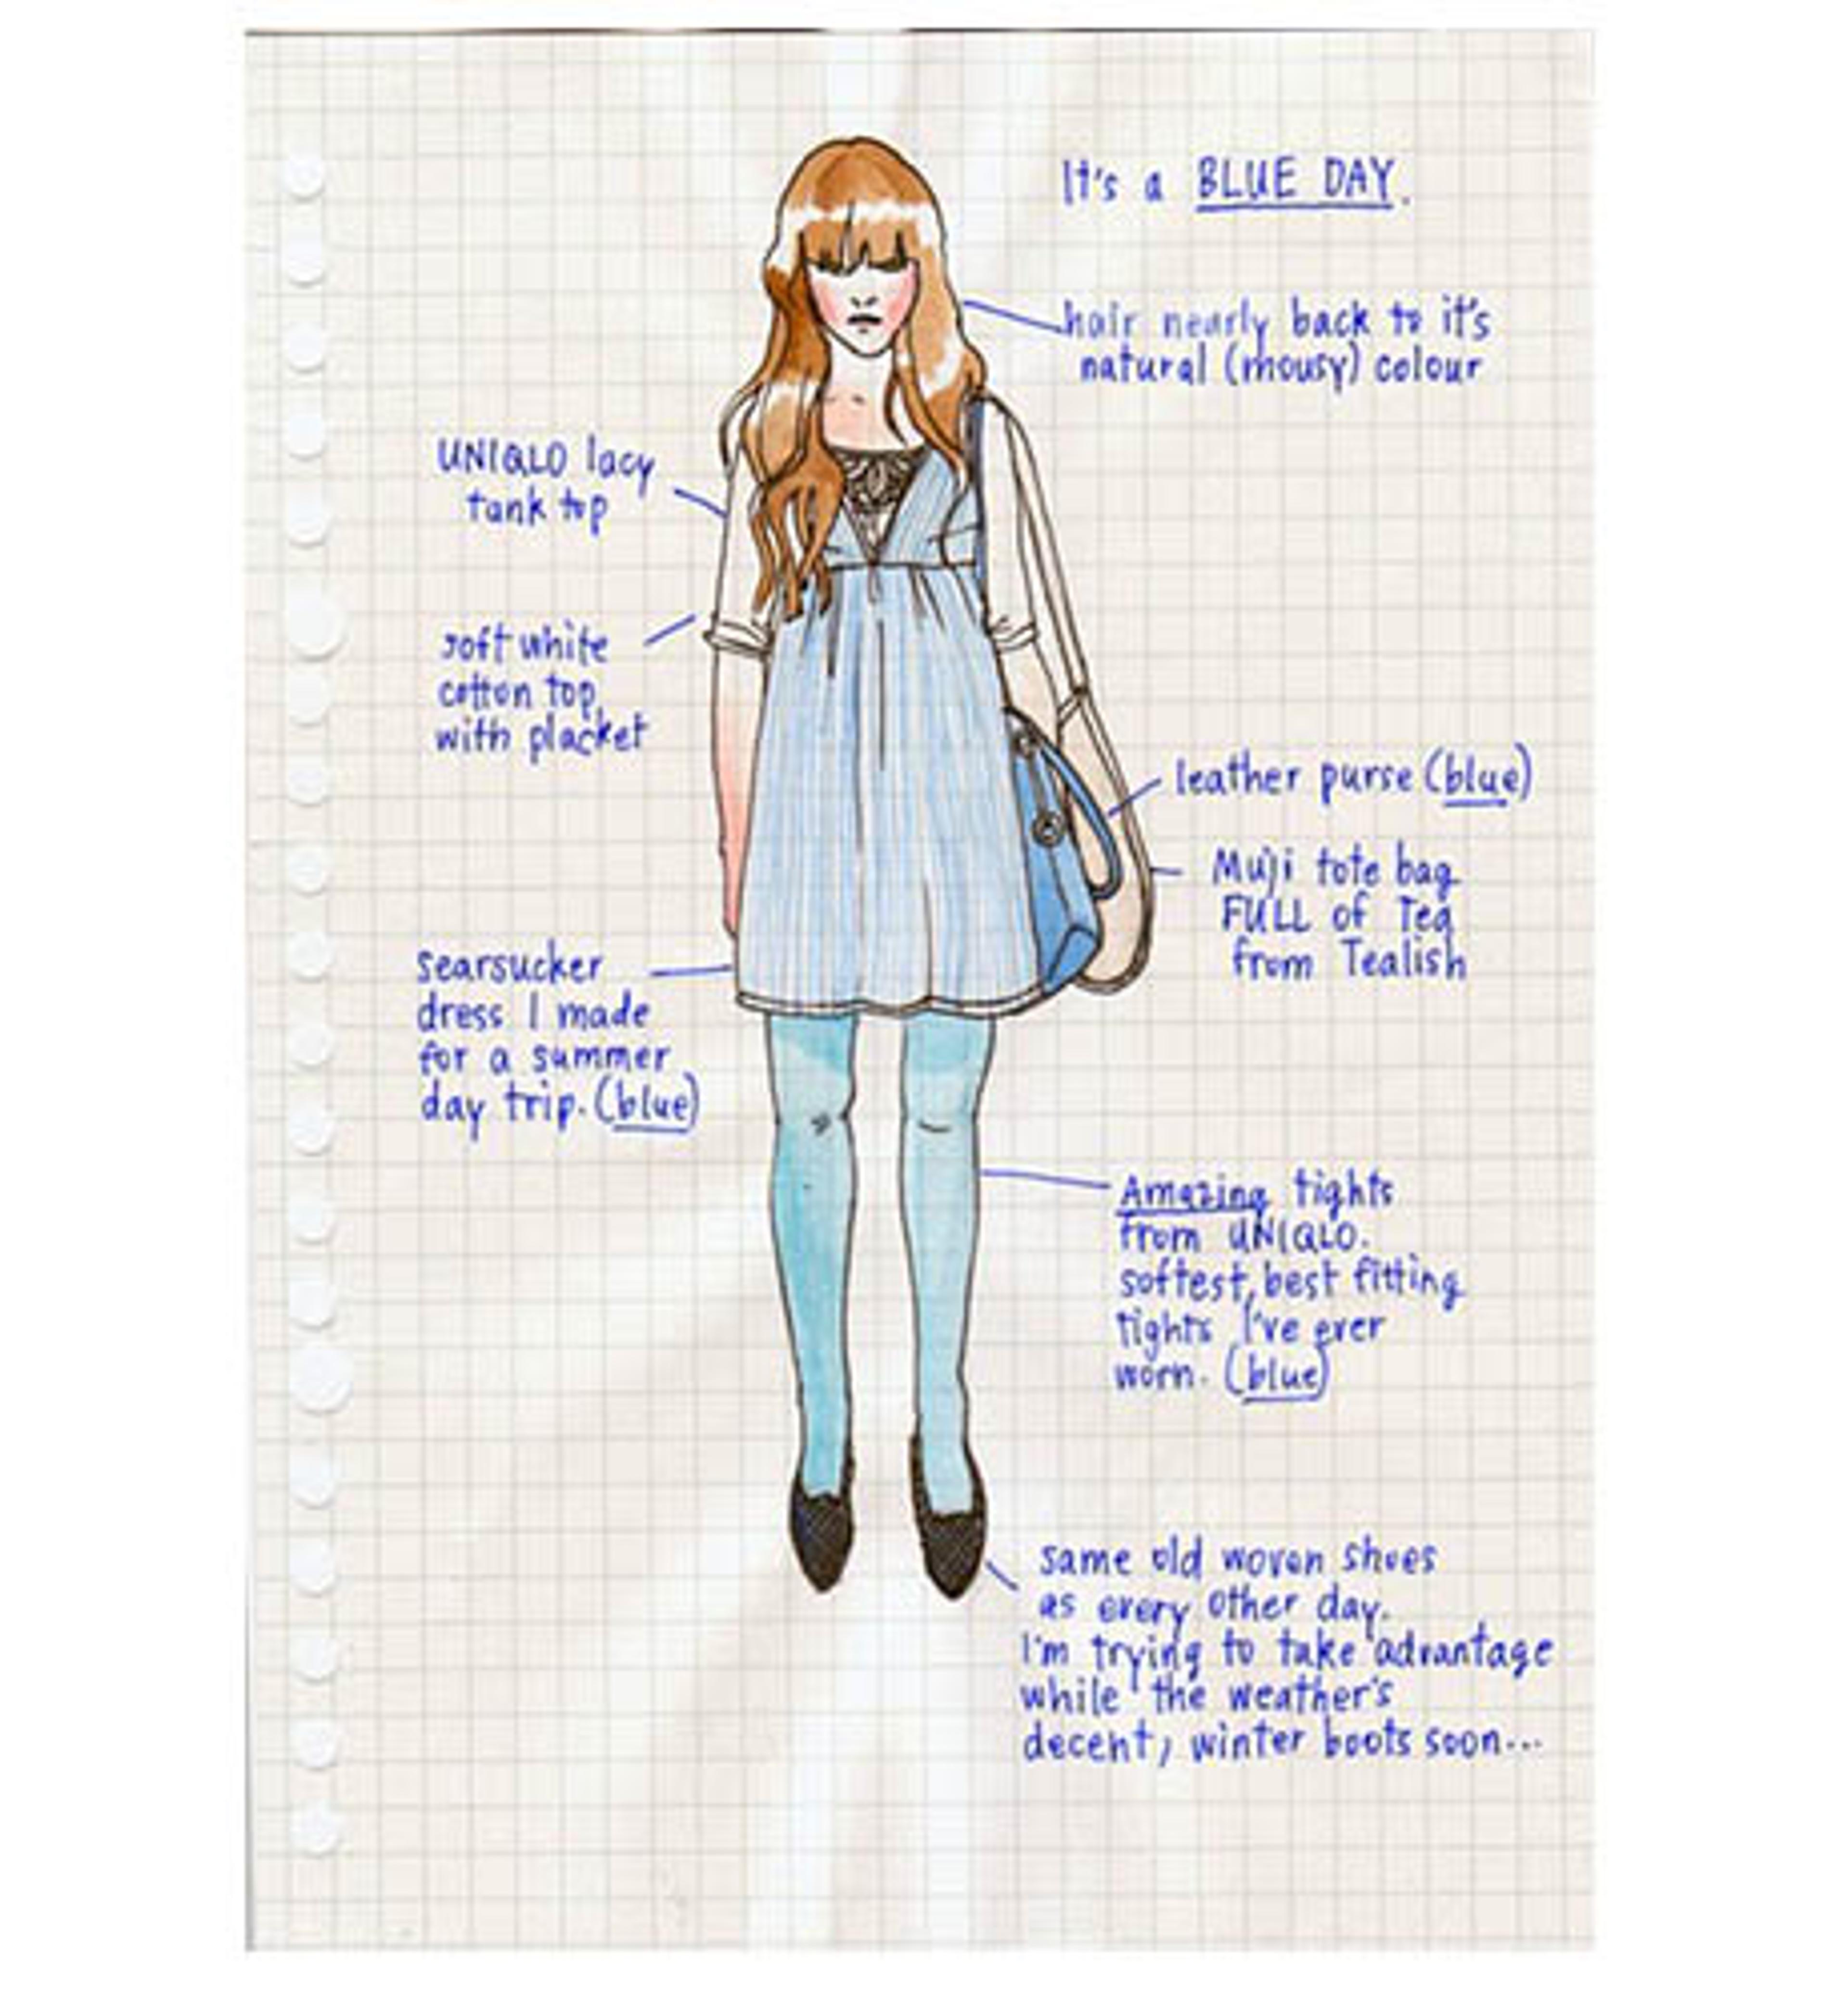 It's a BLUE DAY.
hair nearly back to it's
natural (mousy) colour
UNIQLO lacy
tank top
soft white
cotton top
with placket
leather purse (blue)
Muji tote bag
FULL of Tea
from Tealish
searsucker
dress I made
for a summer
day trip. (blue)
Amazing tights
from UNIQLO.
softest, best fitting
tights I've ever
worn. (blue)
same old woven shoes
as every other day.
I'm trying to take advantage
while the weather's
decent, winter boots soon...